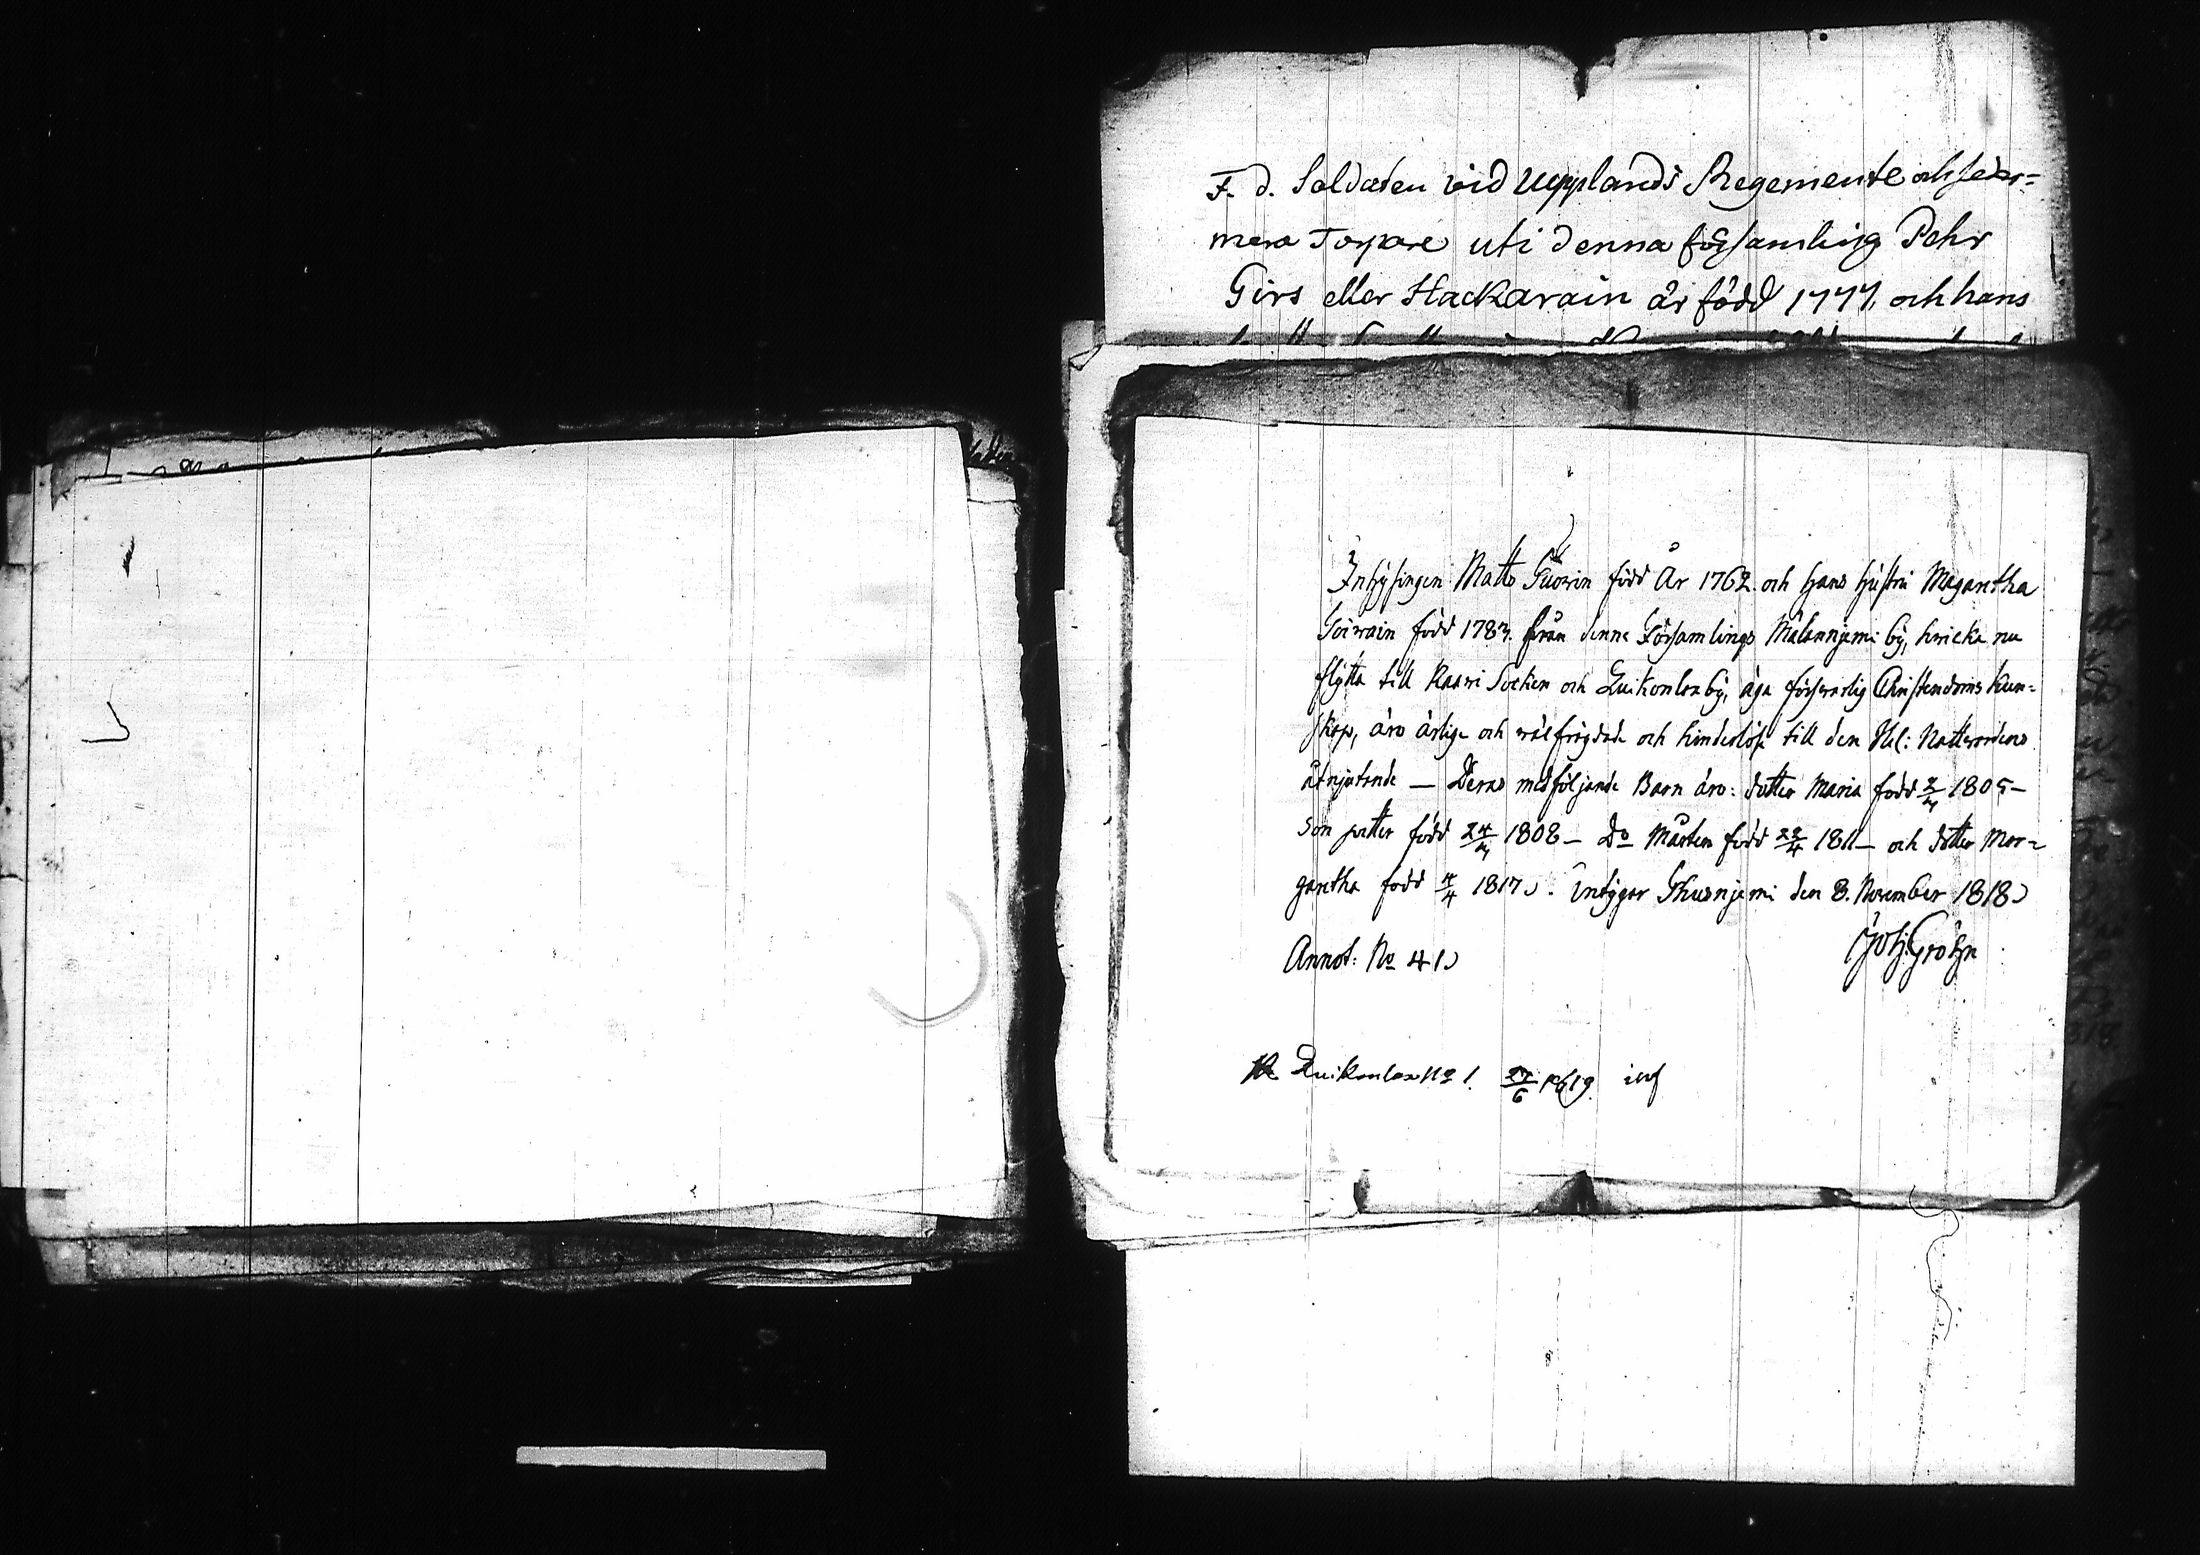 F. d. Soldaten vid Upplands Regemente och seder=
mera Torpare uti denna församling Pehr
Girs eller Hackarain är född 1777, och hans
Inhysingen Matts född År 1762 och hans hustru Margaretha
född 1783. från denna Församlings by, hvilka nu
flytta till Kaavi Socken och Luikonlax by, äga försvarlig Christendoms kun=
skap, äro ärlige och välfrägdade och hinderlöse till den Hel: Nattvardens
åtnjutande — Deras medföljande Barn äro: dotter Maria född 1805 —
son petter född 24 1808 — Do Mårten född 22/4 1811 — och dotter Mar=
garetha född 1817. Intygar den 8. November 1818
Joh: Gröhn
Annot: No 41
Luikonlax No 1. 27/6 1819